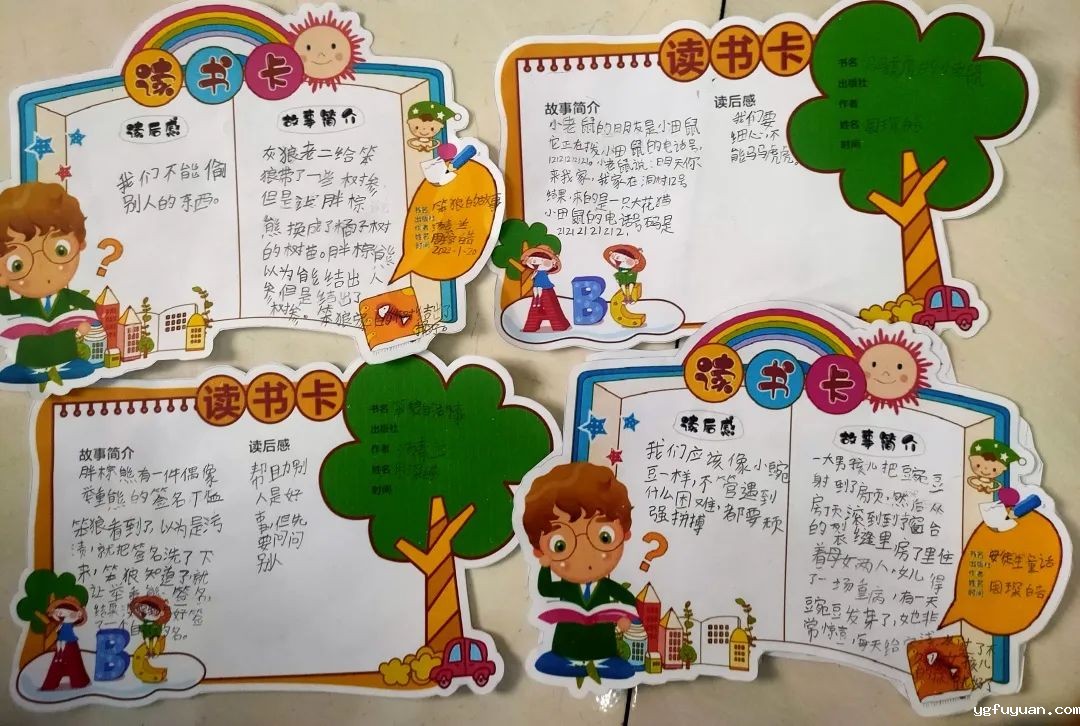 读书卡
读后感
我们不能偷
别人的东西。
故事简介
灰狼老二给笨
狼带了一些树掺,
但是钱胖棕
熊换成了橘子树
的树苗。胖棕熊
以为能结出人
参但是结出了
书名 笨狼的故事
出版社
作者
姓名
时间 2022-1-20
读书卡
故事简介
小老鼠的朋友是小田鼠
它正在找小田鼠的电话号,
1212121212。小老鼠说:明天你
来我家,我家在洞村12号
结果,来的是一只大花猫
小田鼠的电话号码是
2121212121212,
读后感
我们要
细心,不
能马马虎虎
书名
出版社
作者
姓名
时间
ABC
读书卡
故事简介
胖棕熊有一件偶像
签名T恤
笨狼看到了以为是污
渍,就把签名洗了下
来,笨狼知道了就
签名,
读后感
帮助别
人是好
事,但先
要问问
别人
书名
出版社
作者
姓名
时间
ABC
读书卡
读后感
我们应该像小豌
豆一样,不管遇到
什么困难,都要顽
强拼搏
故事简介
一大男孩儿把豌豆
射到了房顶,然后从
房顶滚到到窗台
的裂缝里,房了里住
着母女两人,女儿得
了一场重病,有一天
豌豆发芽了,她非
常惊喜,每天给
书名 安徒生童话
出版社
作者
姓名 周琛皓
时间
ygfuyuan.com